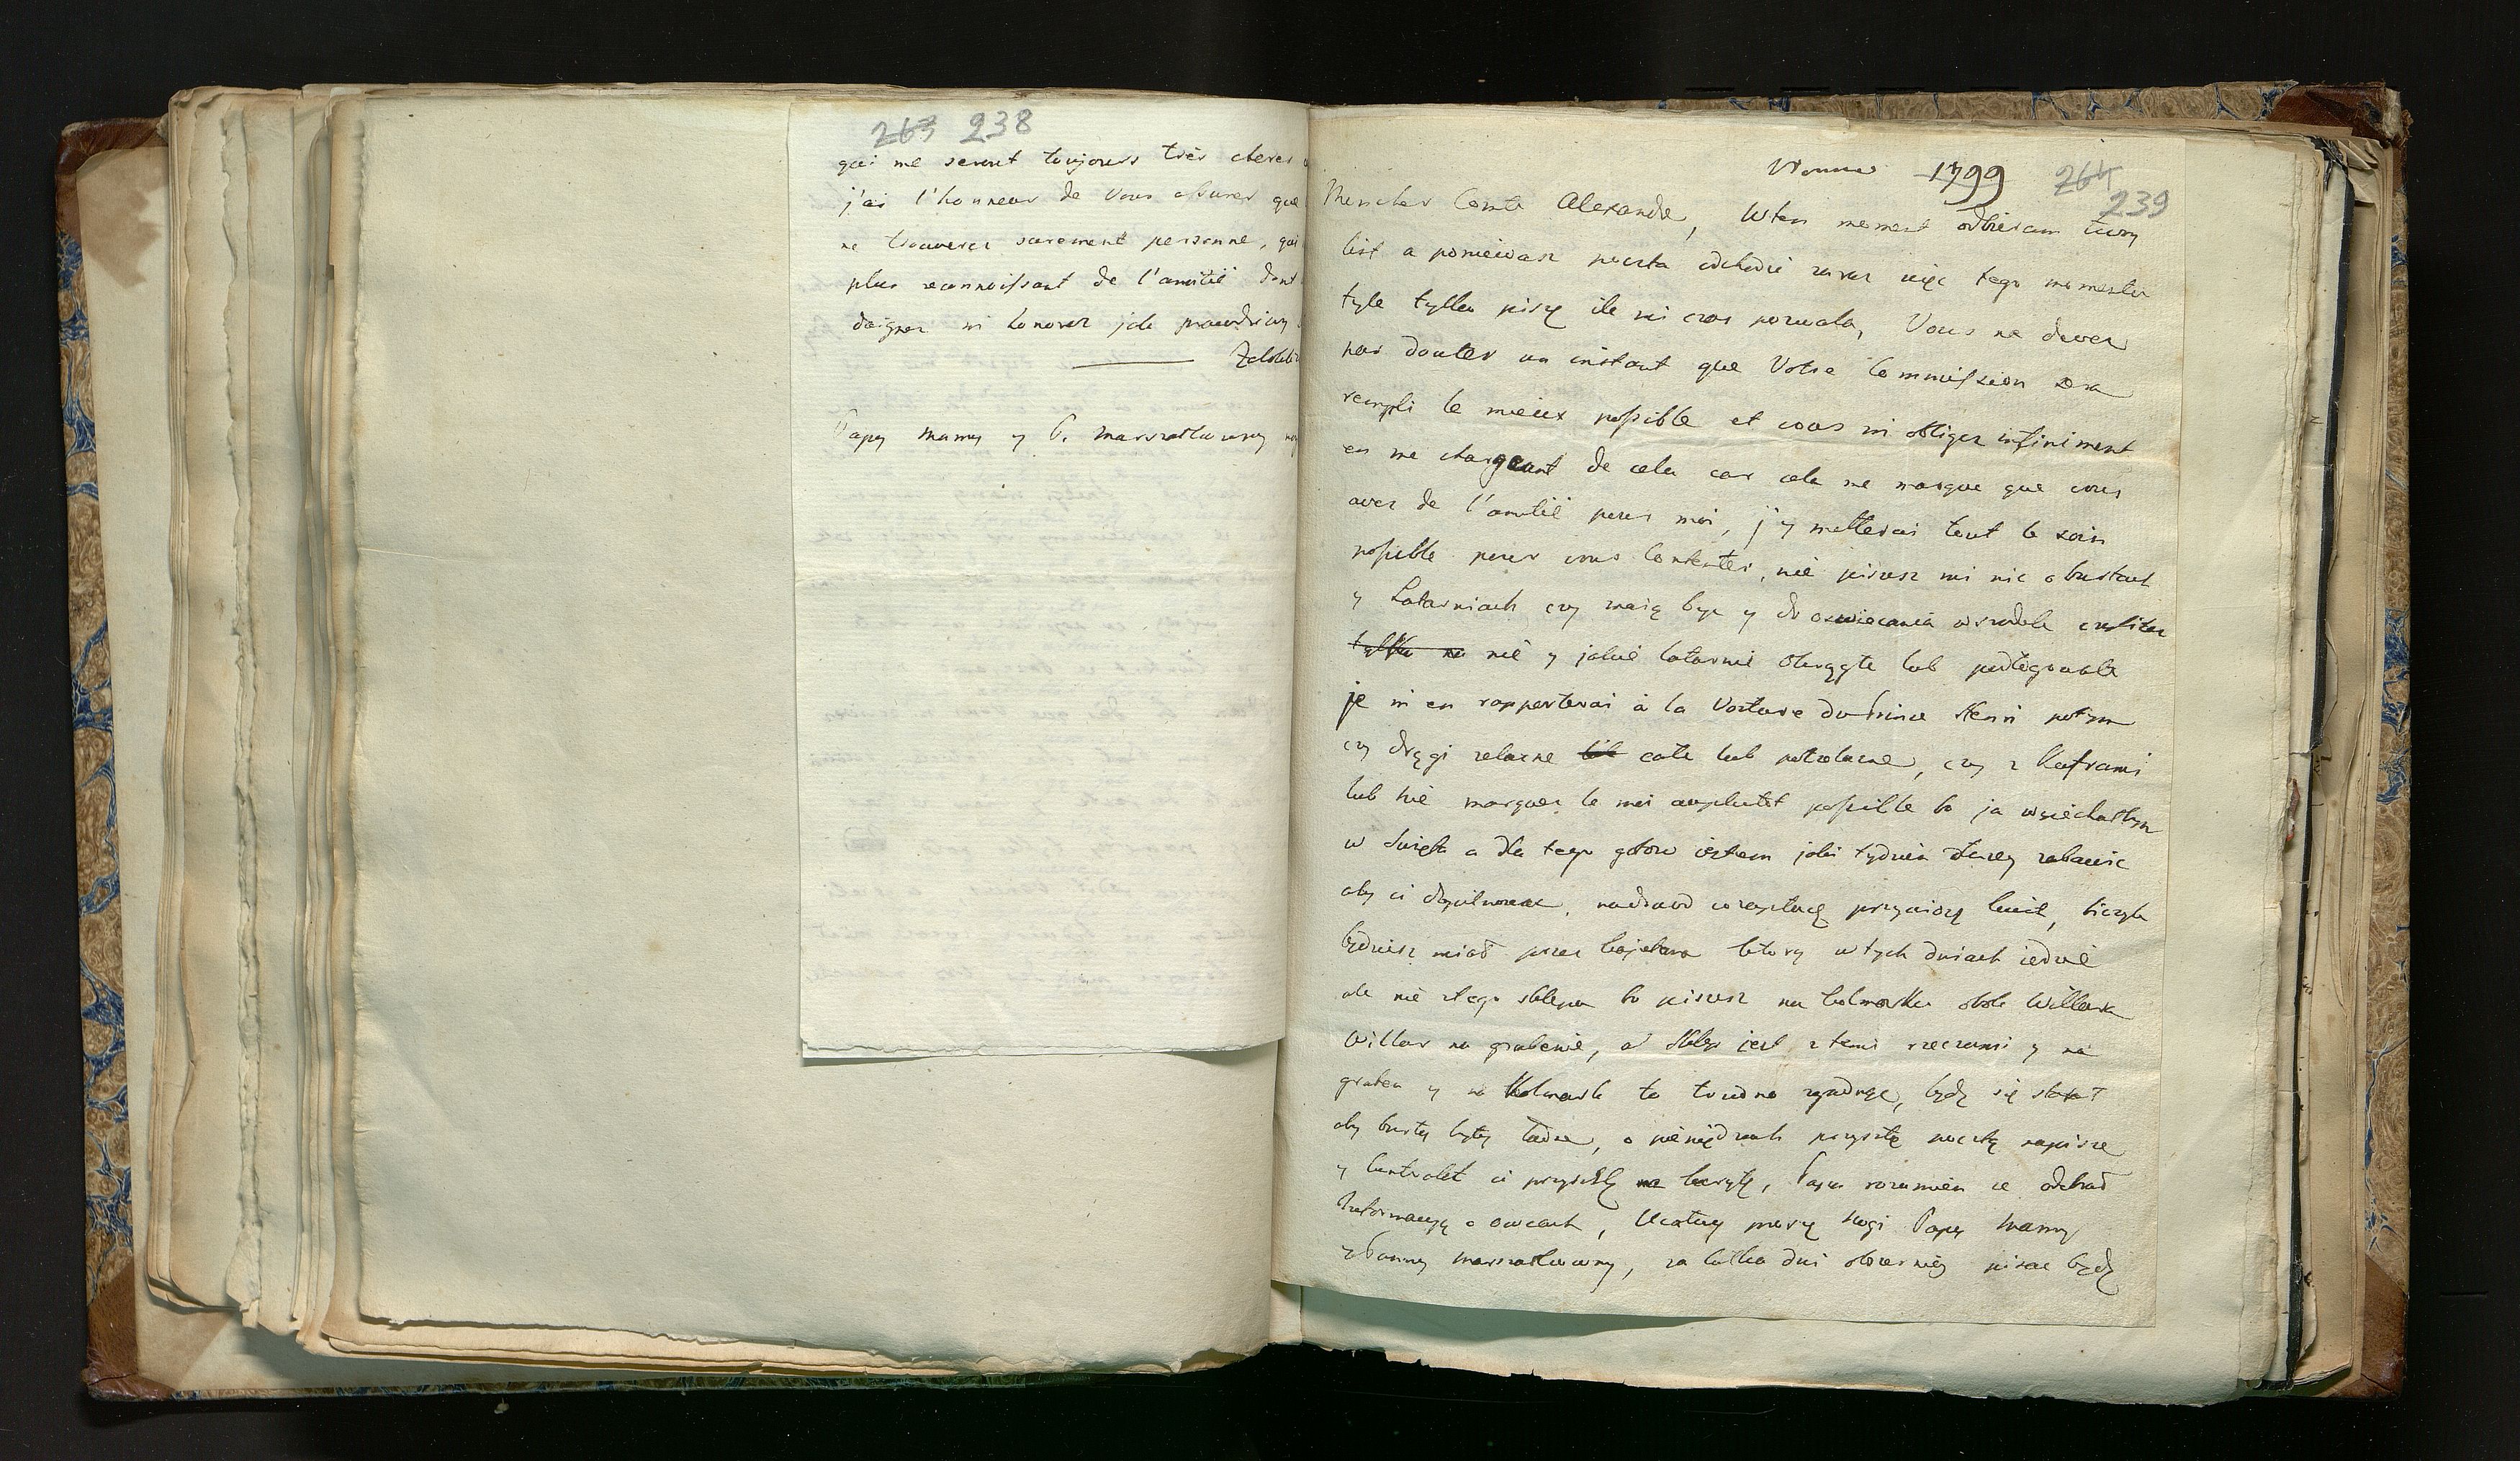 263 238
qui me seront toujours très cheres
j'ai l'honneur de vous assurer que
ne trouverez surement personne, qui
plus reconnoissant de l'amitié dont
daignez m'honorer jak prawdziwy
Papy mamy y P. marszałkowny
Vienne 1799 264
239
Mon cher Comte Alexandre, Wten moment odbieram twoy
list a ponieważ poczta odchodzi zaraz więc tego momentu
tyle tylko piszę ile mi czas pozwala, Vous ne devez
pas douter un instant que Votre Commission sera
rempli le mieux possible et vous m'obligez infiniment
en me chargeant de cela car cela me marque que vous
avez de l'amitié pour moi, j'y metterai tout le soin
possible pour vous contenter, nie piszesz mi nic o bustach
y Latarniach czy maią byc y do oswiecania wsrodku
tylko na nie y jakie latarnie okrągłe lub podługowate
je m'en rapporterai à la Voiture du Prince Henri potym
czy drągi zelazne lub całe lub pułzelazne, czy z Kuframi
lub nie marquez le moi au plutot possible bo ja wyiechałbym
w Swięta a dla tego gotow iestem jaki tydzień dłużey zabawic
aby ci dopilnowac, przywiozę
będziesz miał przez ktory w tych dniach iedzie
ale nie ztego sklepu bo piszesz na kolmarku obok Willera
Willer na grabenie, a sklep jest z temi rzeczami y na
graben y na Kolmark to trudno zgadnąc, będę się starał
aby busty były ładne, o pieniędzach przyszłą pocztą napisze
y ci przyszlę na, Papa rozumiem ze odebrał
Informacyą o owcach, Ucałuy proszę Nogi Papy Mamy
y Panny marszałkowny, za kilka dni obszerniey pisac będę